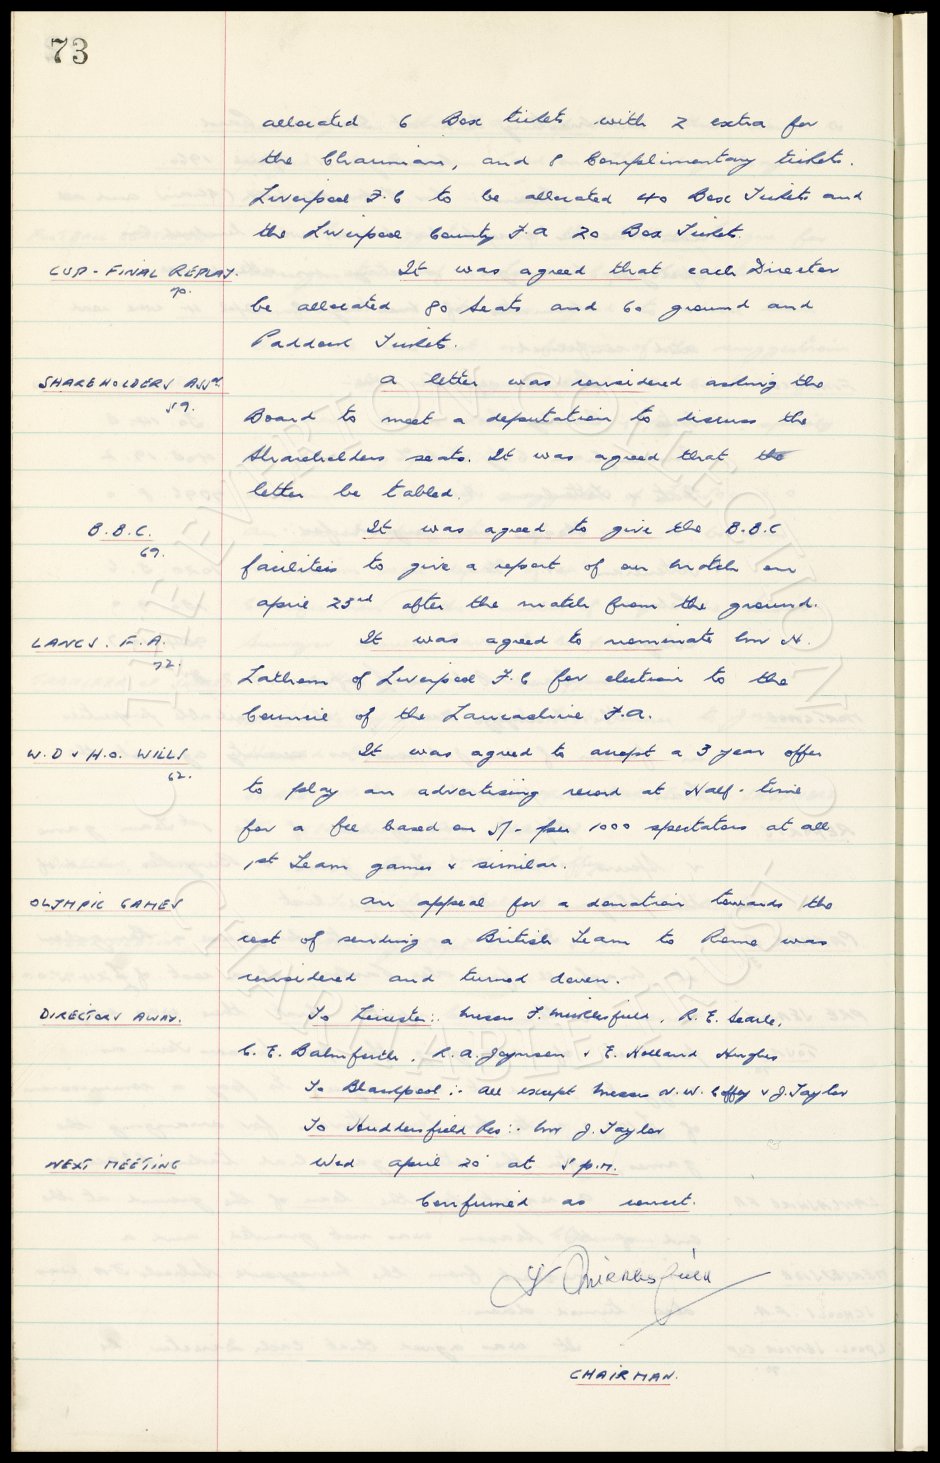 73
allocated 6 Box tickets with 2 extra for
the Chairman, and 8 Complimentary tickets.
Liverpool F.C to be allocated 40 Box Tickets and
the Liverpool County F.A 20 Box Tickets.
CUP-FINAL REPLAY. It was agreed that each Director
70.
be allocated 80 Seats and 60 ground and
Paddock Tickets.
SHAREHOLDERS ASSn. A letter was considered asking the
59.
Board to meet a deputation to discuss the
Shareholders seats. It was agreed that the
letter be tabled.
B.B.C. It was agreed to give the B.B.C
69.
facilities to give a report of our match on
April 23rd after the match from the ground.
LANCS. F.A. It was agreed to nominate Mr N.
72.
Latham of Liverpool F.C for election to the
Council of the Lancashire F.A.
W.D & H.O. WILLS It was agreed to accept a 3 year offer
62.
to play an advertising record at Half-time
for a fee based on 5/- per 1000 spectators at all
1st Team games & similar.
OLYMPIC GAMES An appeal for a donation towards the
cost of sending a British Team to Rome was
considered and turned down.
DIRECTORS AWAY. To Leicester:- Messrs F. Micklesfield, R.E. Searle,
C.E. Balmforth, R.A. Joynson & E. Holland Hughes
To Blackpool:- All except Messrs N.W. Coffey & J. Taylor
To Huddersfield Res:- Mr J. Taylor
NEXT MEETING Wed April 20 at 5 p.m.
Confirmed as correct.
F Micklesfield
CHAIRMAN.
WELLCOME COLLECTION